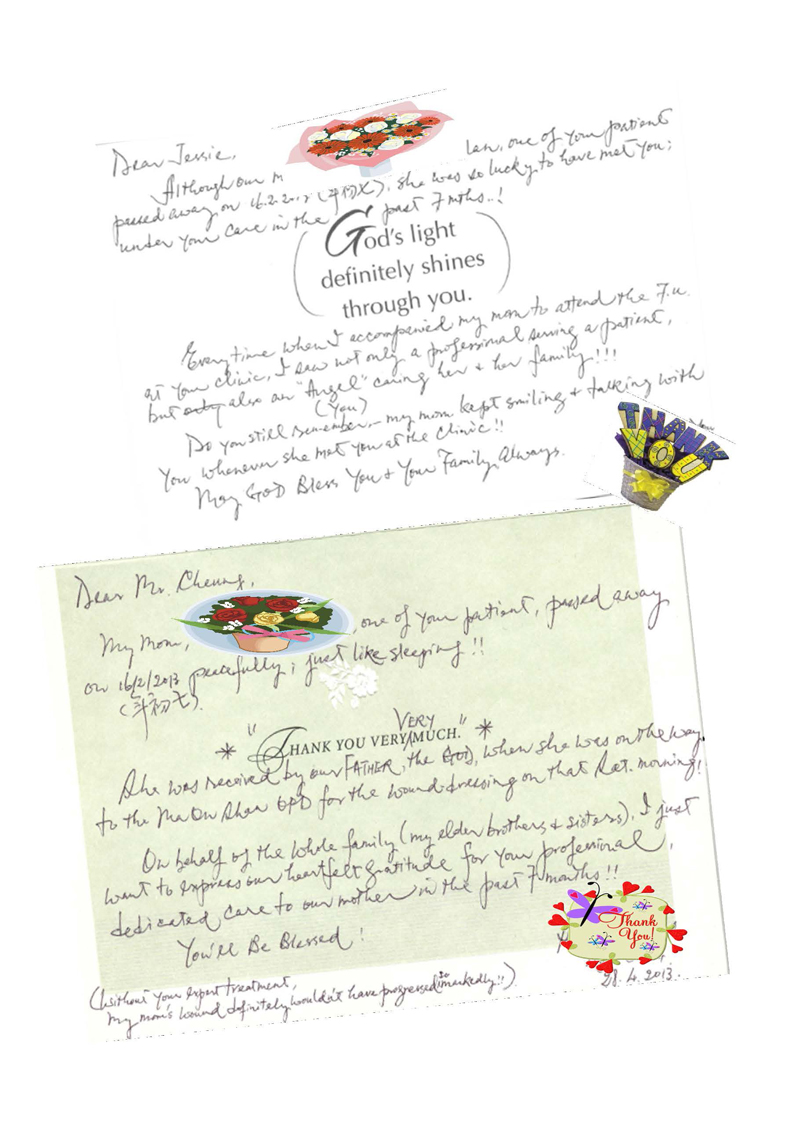 Dear Jessie,
Although our m lan, one of your patient
passed away on 16.2.2013 (年初七), she was so lucky to have met you;
under your care in the past 7 mths..!
(God's light
definitely shines
through you.)
Everytime when I accompanied my mom to attend the F.u.
at your clinic, I saw not only a professional serving a patient,
but only also an "Angel" caring her & her family!!!
(You)
Do you still remember... my mom kept smiling & talking with
you whenever she met you at the clinic!!
May GOD Bless You & Your Family Always.
THANK
YOU
Dear Mr. Cheung,
My Mom, , one of your patient, passed away
on 16/2/2013 peacefully; just like sleeping!!
(年初七).
* "THANK YOU VERY VERY MUCH." *
She was received by our FATHER, the GOD, when she was on the way
to the Ma On Shan OPD for the wound dressing on that Sat. morning!
On behalf of the whole family (my elder brothers & sisters), I just
want to express our heartfelt gratitude for your professional,
dedicated care to our mother in the past 7 months!!
You'll Be Blessed!
Thank
You!
28.4.2013.
(Without your expert treatment,
my mom's wound definitely wouldn't have progressed so markedly!!)